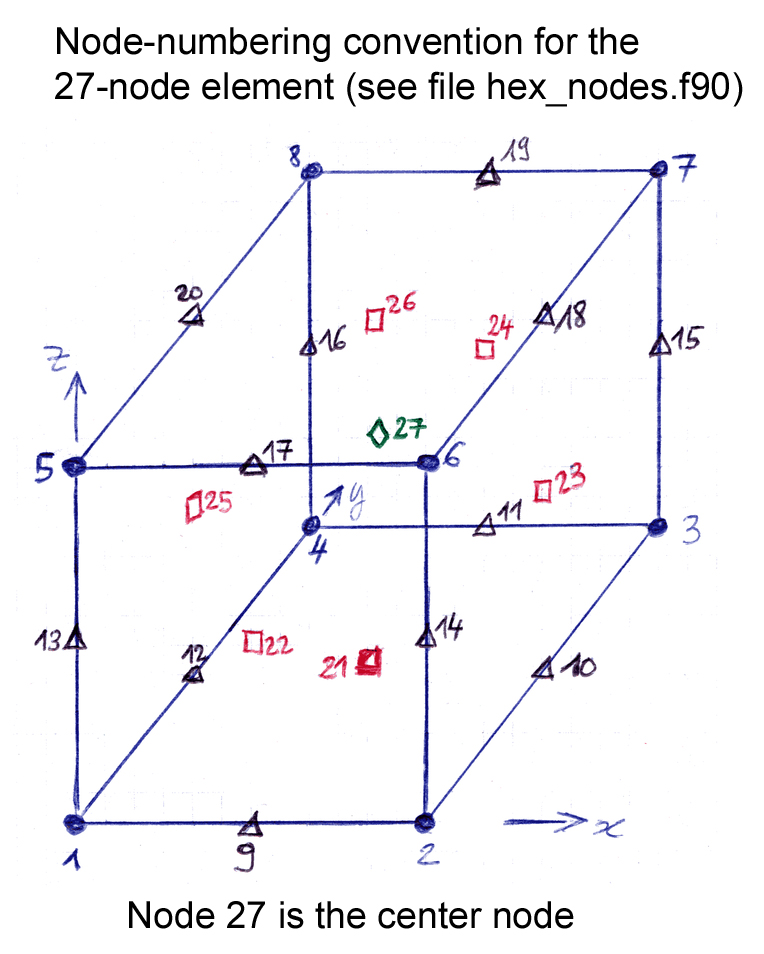 Node-numbering convention for the
27-node element (see file hex_nodes.f90)
8
19
7
20
26
24
18
16
15
z
27
17
5
6
25
23
y
11
4
3
13
14
12
22
21
10
x
1
9
2
Node 27 is the center node